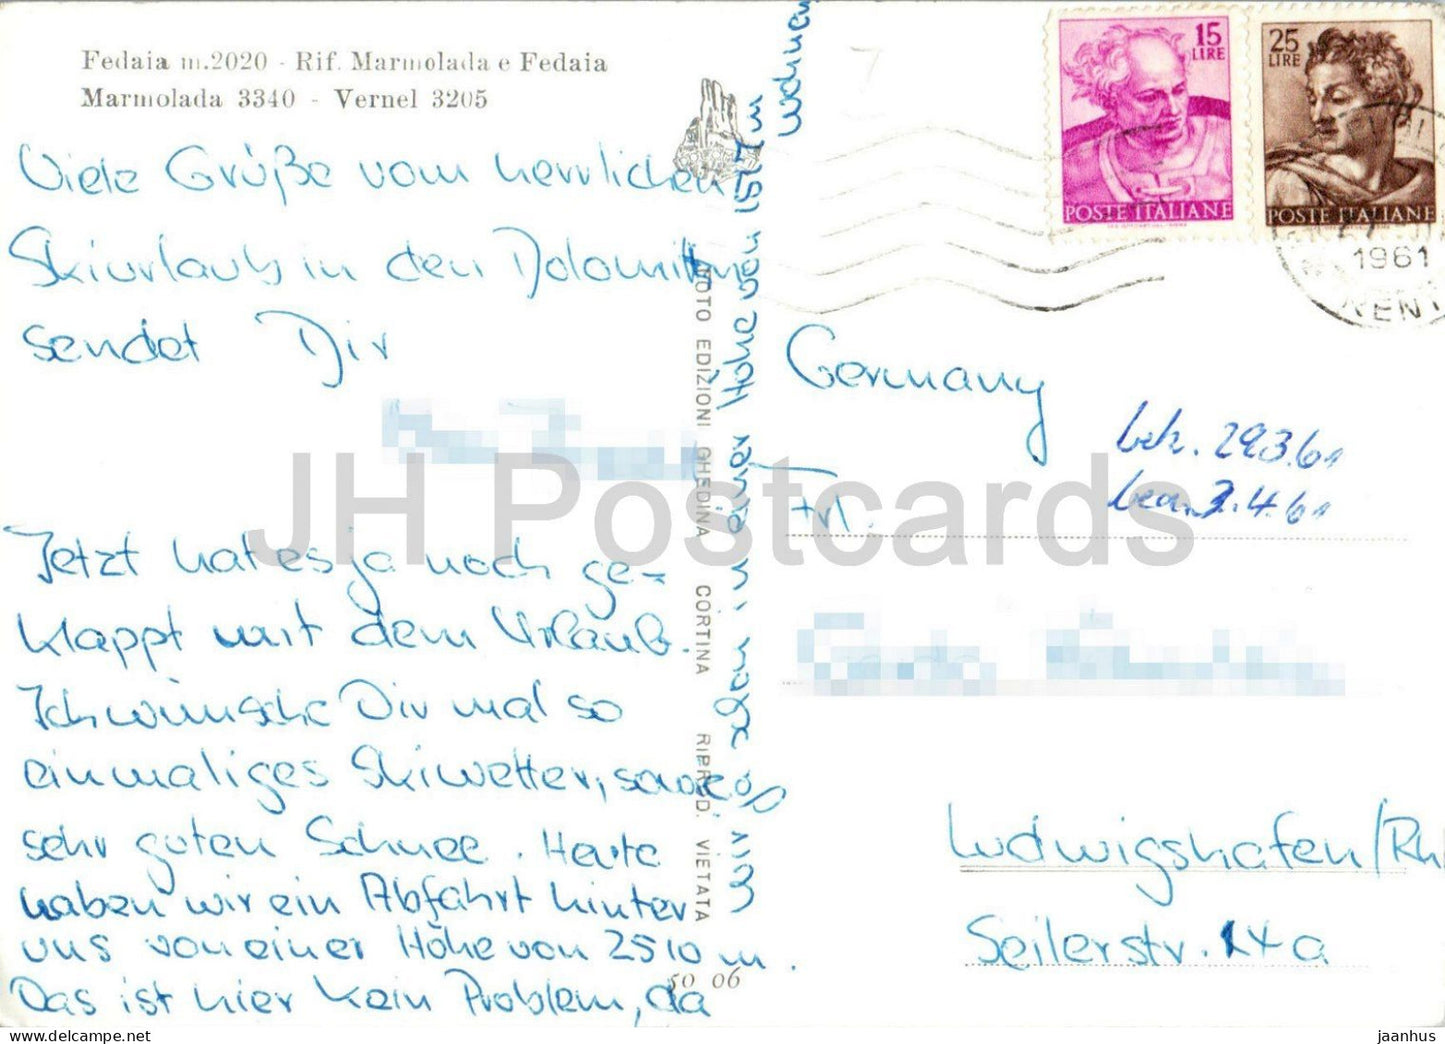 Fedaia m.2020 - Rif. Marmolada e Fedaia
Marmolada 3340 - Vernel 3205
Viele Grüße vom herrlichen
Skiurlaub in den Dolomiten
sendet Dir
Jetzt hat es ja noch ge-
klappt mit dem Urlaub.
Ich wünsche Dir mal so
einmaliges Skiwetter, sowie
sehr guten Schnee. Heute
haben wir ein Abfahrt hinter
uns von einer Höhe von 2510 m.
Das ist hier kein Problem, da
wir schon in einer Höhe von 1517 m
wohnen
FOTO EDIZIONI GHEDINA CORTINA RIPROD. VIETATA
50 06
15
LIRE
POSTE ITALIANE
25
LIRE
POSTE ITALIANE
1961
Germany
bek. 29.3.61
bea. 2.4.61
Frl.
Ludwigshafen/Rh
Seilerstr. 14a
JH Postcards
jaanhus